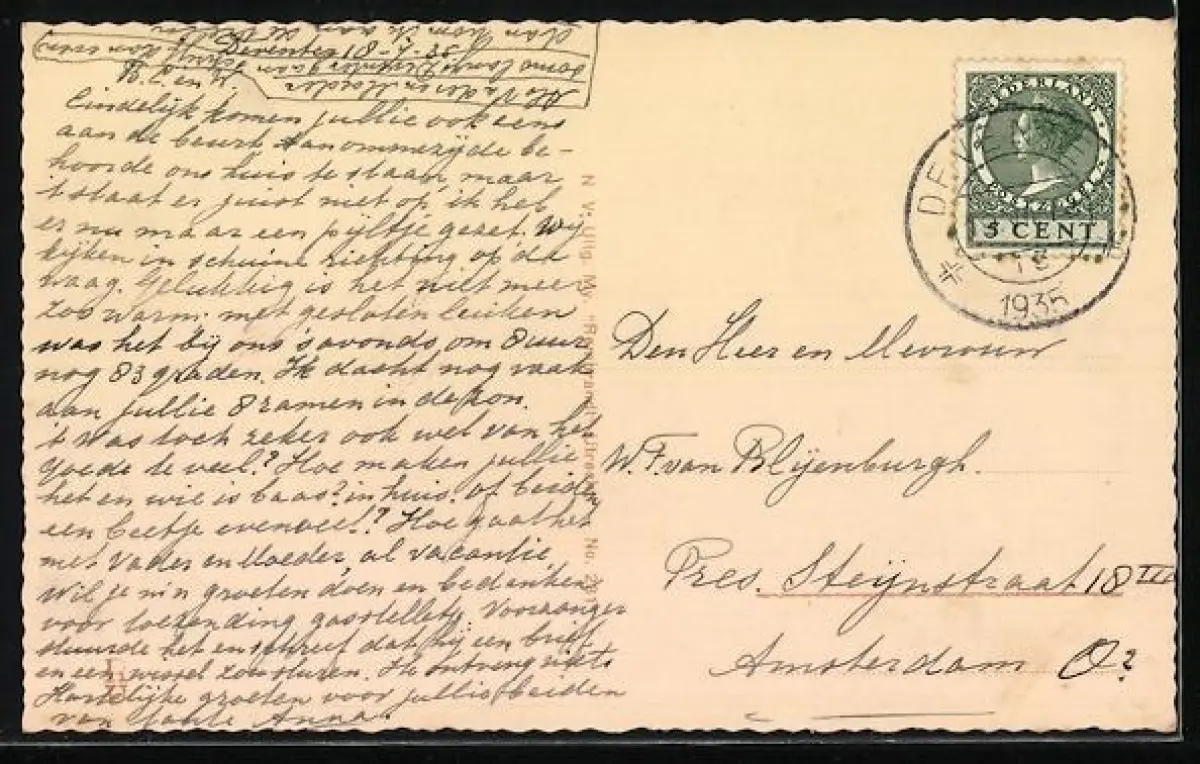 Deventer 18-7-35
B. C. en W.
Eindelijk komen jullie ook eens
aan de beurt. Aan ommezijde be-
hoorde ons huis te staan, maar
't staat er juist niet op, ik heb
er nu maar een pijltje gezet. Wij
kijken in schuine richting op de
waag. Gelukkig is het niet meer
zoo warm. met gesloten luiken
was het bij ons 's avonds om 8 uur
nog 83 graden. Ik dacht nog vaak
aan jullie 8 ramen in de zon.
't Was toch zeker ook wel van het
goede te veel? Hoe maken jullie
het en wie is baas? in huis. of beiden
een beetje evenveel!? Hoe gaat het
met Vader en Moeder, al vacantie.
Wil je m'n groeten doen en bedanken
voor toezending gasstelletje. Vorzanger
stuurde het en schreef dat hij een brief
en een wissel zou sturen. Ik ontving niets
Hartelijke groeten voor jullie beiden
van Tante Anna.
N. V. Uitg. My. "Rembrandt" Utrecht No.
NEDERLAND
5 CENT
DEVENTER
18
1935
Den Heer en Mevrouw
W. F. van Blijenburgh.
Pres. Steijnstraat 18 III
Amsterdam O?